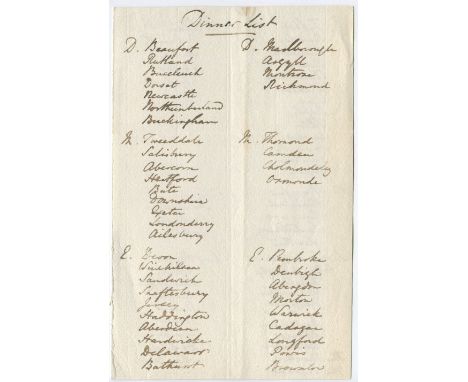 Dinner List
D. Beaufort
Rutland
Buccleuch
Dorset
Newcastle
Northumberland
Buckingham
D. Marlborough
Argyll
Montrose
Richmond
M. Tweeddale
Salisbury
Abercorn
Hertford
Bute
Downshire
Exeter
Londonderry
Ailesbury
M. Thomond
Camden
Cholmondeley
Ormonde
E. Devon
Winchilsea
Sandwich
Shaftesbury
Jersey
Haddington
Aberdeen
Hardwicke
Delawarr
Bathurst
E. Pembroke
Denbigh
Abingdon
Morton
Warwick
Cadogan
Longford
Powis
Brownlow